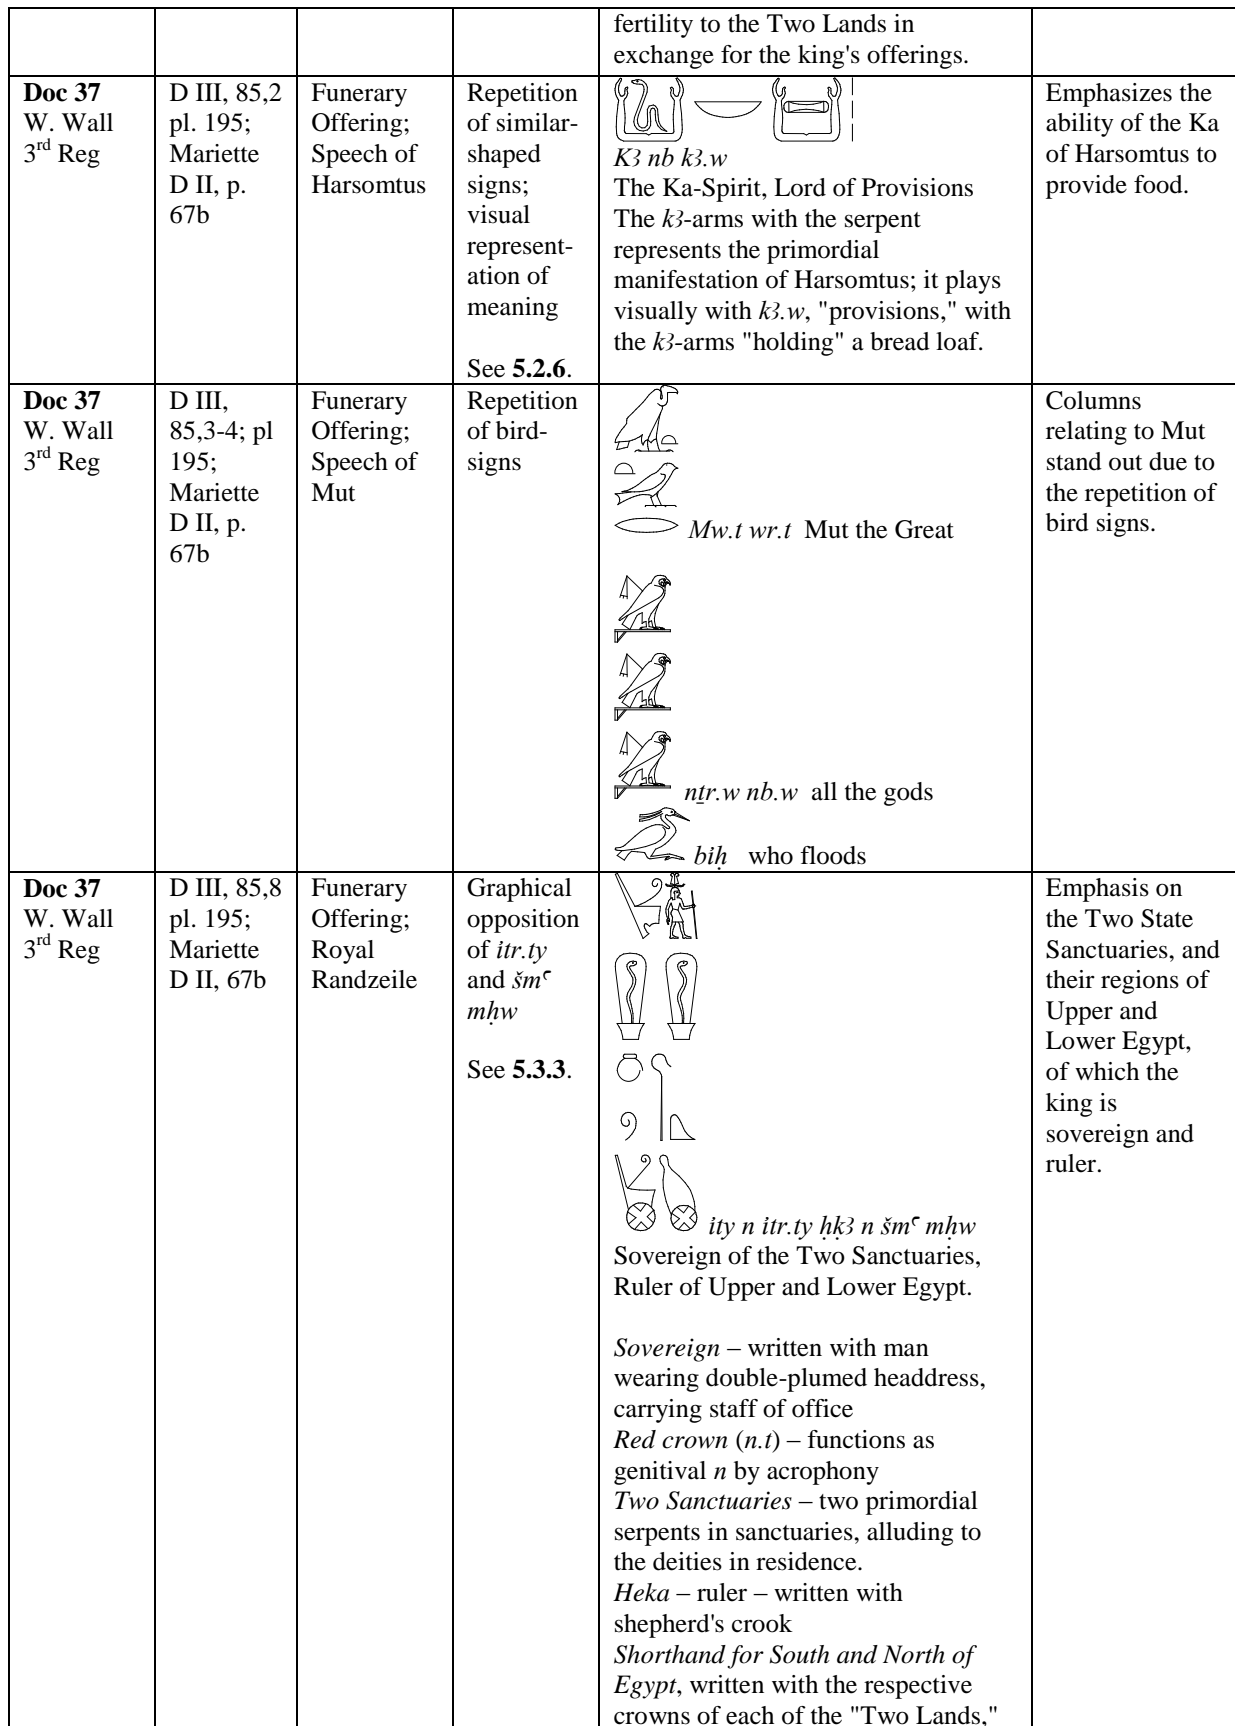 fertility to the Two Lands in
exchange for the king's offerings.
Doc 37
W. Wall
3rd Reg
D III, 85,2
pl. 195;
Mariette
D II, p.
67b
Funerary
Offering;
Speech of
Harsomtus
Repetition
of similar-
shaped
signs;
visual
represent-
ation of
meaning
See 5.2.6.
Kꜣ nb kꜣ.w
The Ka-Spirit, Lord of Provisions
The kꜣ-arms with the serpent
represents the primordial
manifestation of Harsomtus; it plays
visually with kꜣ.w, "provisions," with
the kꜣ-arms "holding" a bread loaf.
Emphasizes the
ability of the Ka
of Harsomtus to
provide food.
Doc 37
W. Wall
3rd Reg
D III,
85,3-4; pl
195;
Mariette
D II, p.
67b
Funerary
Offering;
Speech of
Mut
Repetition
of bird-
signs
Mw.t wr.t Mut the Great
nṯr.w nb.w all the gods
bỉḥ who floods
Columns
relating to Mut
stand out due to
the repetition of
bird signs.
Doc 37
W. Wall
3rd Reg
D III, 85,8
pl. 195;
Mariette
D II, 67b
Funerary
Offering;
Royal
Randzeile
Graphical
opposition
of ỉtr.ty
and šmꜥ
mḥw
See 5.3.3.
ỉty n ỉtr.ty ḥḳꜣ n šmꜥ mḥw
Sovereign of the Two Sanctuaries,
Ruler of Upper and Lower Egypt.
Sovereign – written with man
wearing double-plumed headdress,
carrying staff of office
Red crown (n.t) – functions as
genitival n by acrophony
Two Sanctuaries – two primordial
serpents in sanctuaries, alluding to
the deities in residence.
Heka – ruler – written with
shepherd's crook
Shorthand for South and North of
Egypt, written with the respective
crowns of each of the "Two Lands,"
Emphasis on
the Two State
Sanctuaries, and
their regions of
Upper and
Lower Egypt,
of which the
king is
sovereign and
ruler.